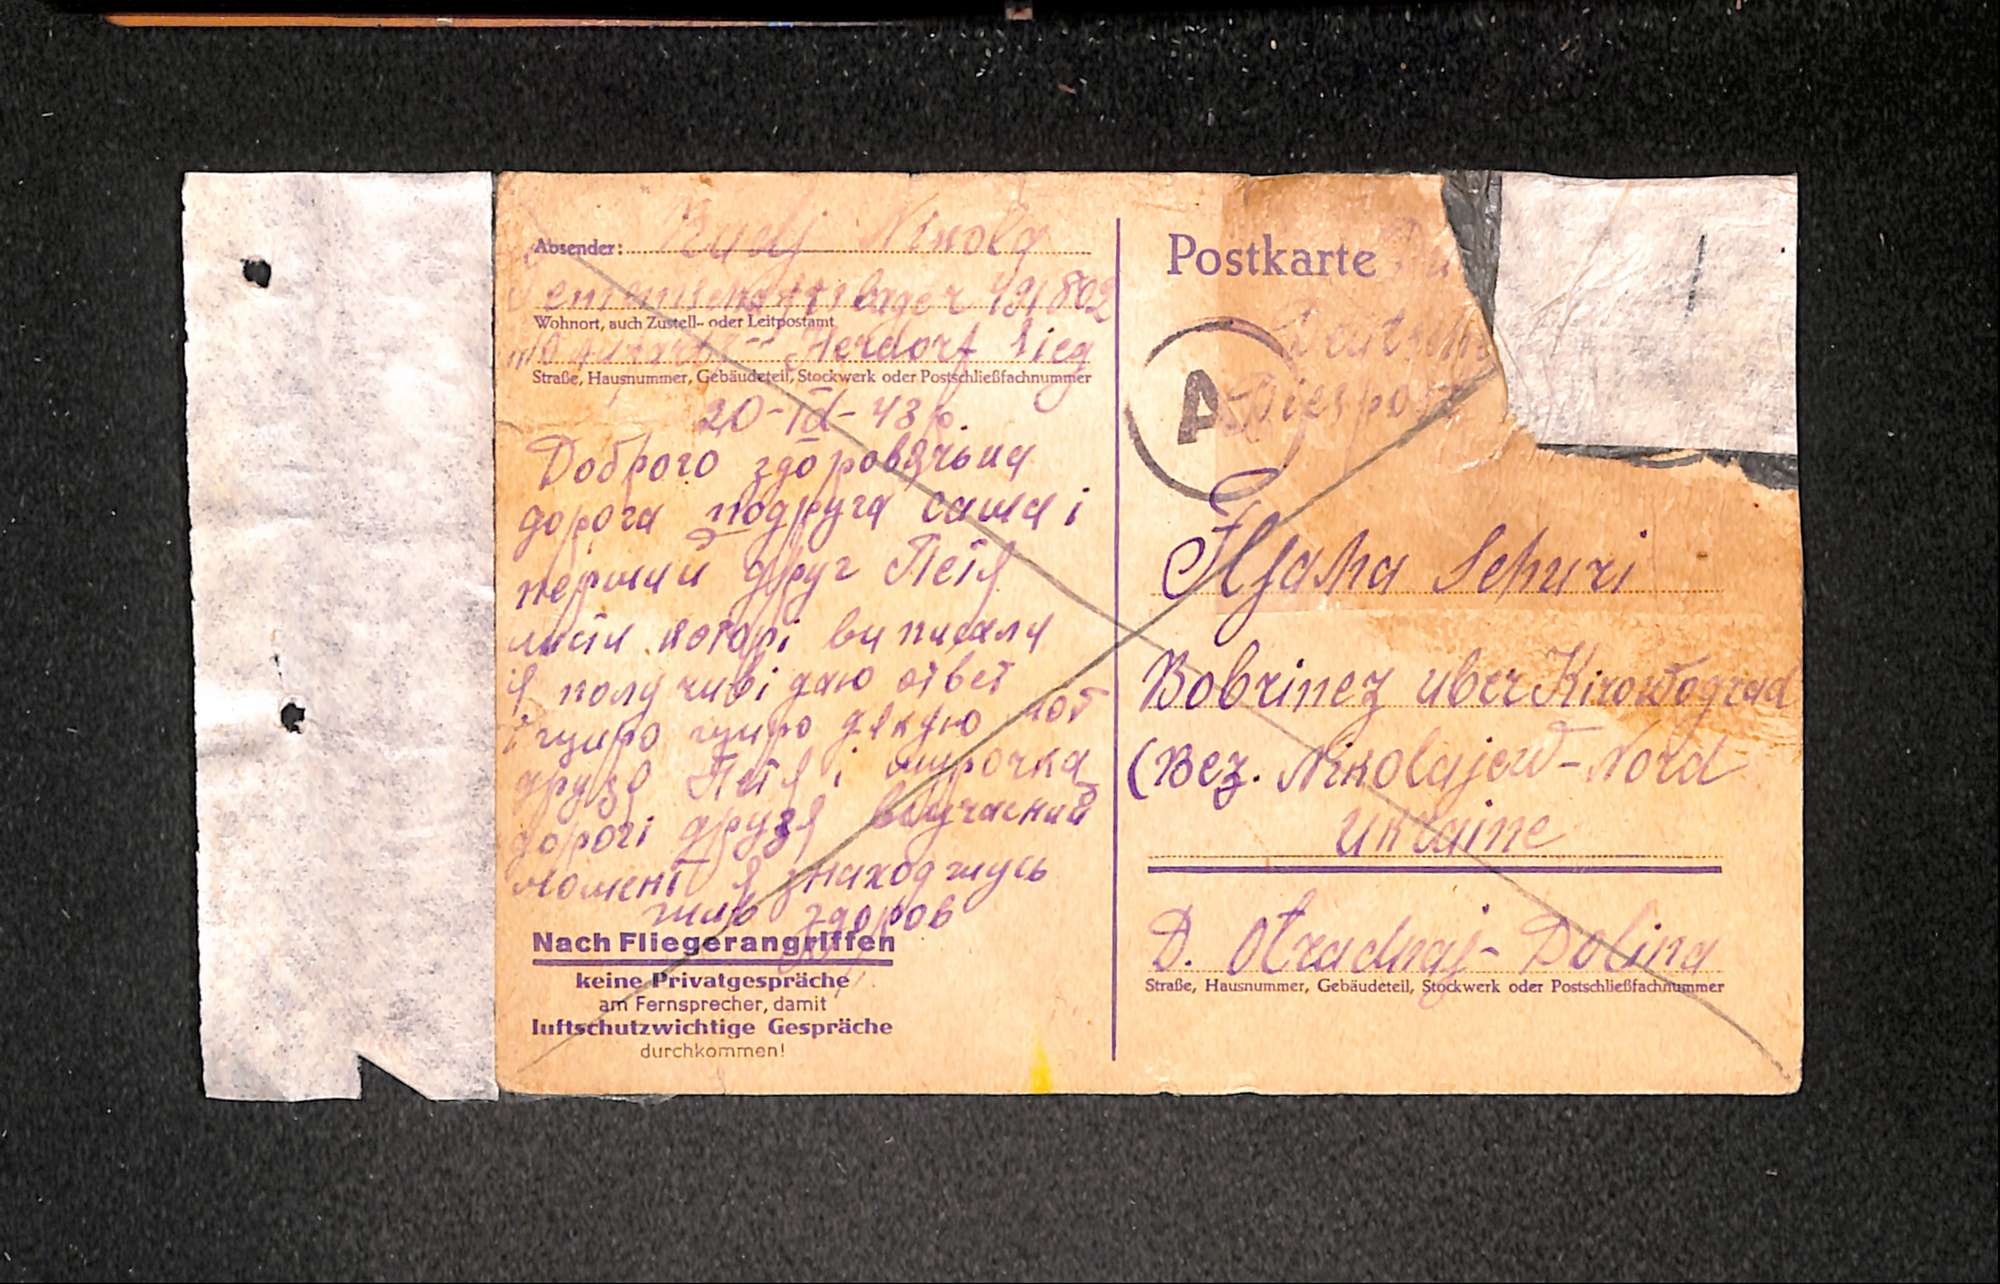 Absender: Nikola
Gemeinschaftslager 491802
Wohnort, auch Zustell- oder Leitpostamt
Herdorf Sieg
Straße, Hausnummer, Gebäudeteil, Stockwerk oder Postschließfachnummer
20-IV-43 р.
Доброго здоровячьиа
дорога подруга саша і
перший друг Петя
писти котарі ви писали
я получиві даю ответ
і щиро щиро дякую
друзя Петя і шурочка
дорогі друзя
момент я знаходжусь
жив здоров
Nach Fliegerangriffen
keine Privatgespräche
am Fernsprecher, damit
luftschutzwichtige Gespräche
durchkommen!
Postkarte
Deutsche
Diespost
A
Iljaha
Bobrinez uber Kirowograd
(Bez. Nikolajew-Nord
Ukraine
D. Otradnaj-Dolina
Straße, Hausnummer, Gebäudeteil, Stockwerk oder Postschließfachnummer